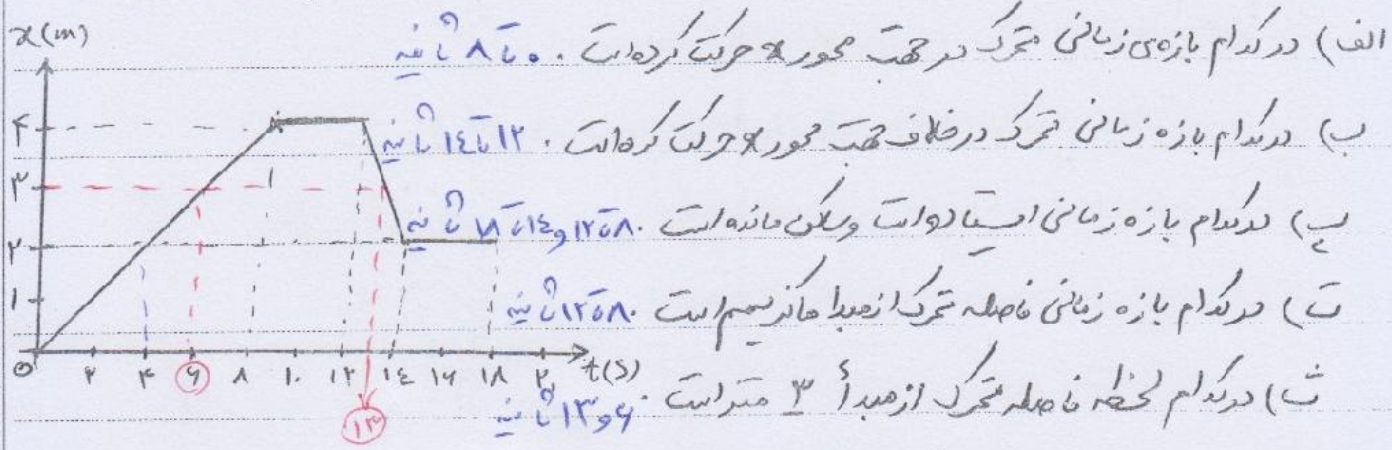 x(m)
الف) در کدام بازه‌ی زمانی متحرک در جهت محور x حرکت کرده‌است . ۰ تا ۸ ثانیه
ب) در کدام بازه زمانی متحرک در خلاف جهت محور x حرکت کرده‌است . ۱۲ تا ۱۴ ثانیه
پ) در کدام بازه زمانی ایستاده است و ساکن مانده است . ۸ تا ۱۲ و ۱۴ تا ۱۸ ثانیه
ت) در کدام بازه زمانی فاصله متحرک از مبدا ماکزیمم است . ۸ تا ۱۲ ثانیه
ث) در کدام لحظه فاصله متحرک از مبدأ ۳ متر است . ۶ و ۱۳ ثانیه
۴
۳
۲
۱
۰ ۲ ۴ ۶ ۸ ۱۰ ۱۲ ۱۴ ۱۶ ۱۸ ۲۰ t(s)
۱۳